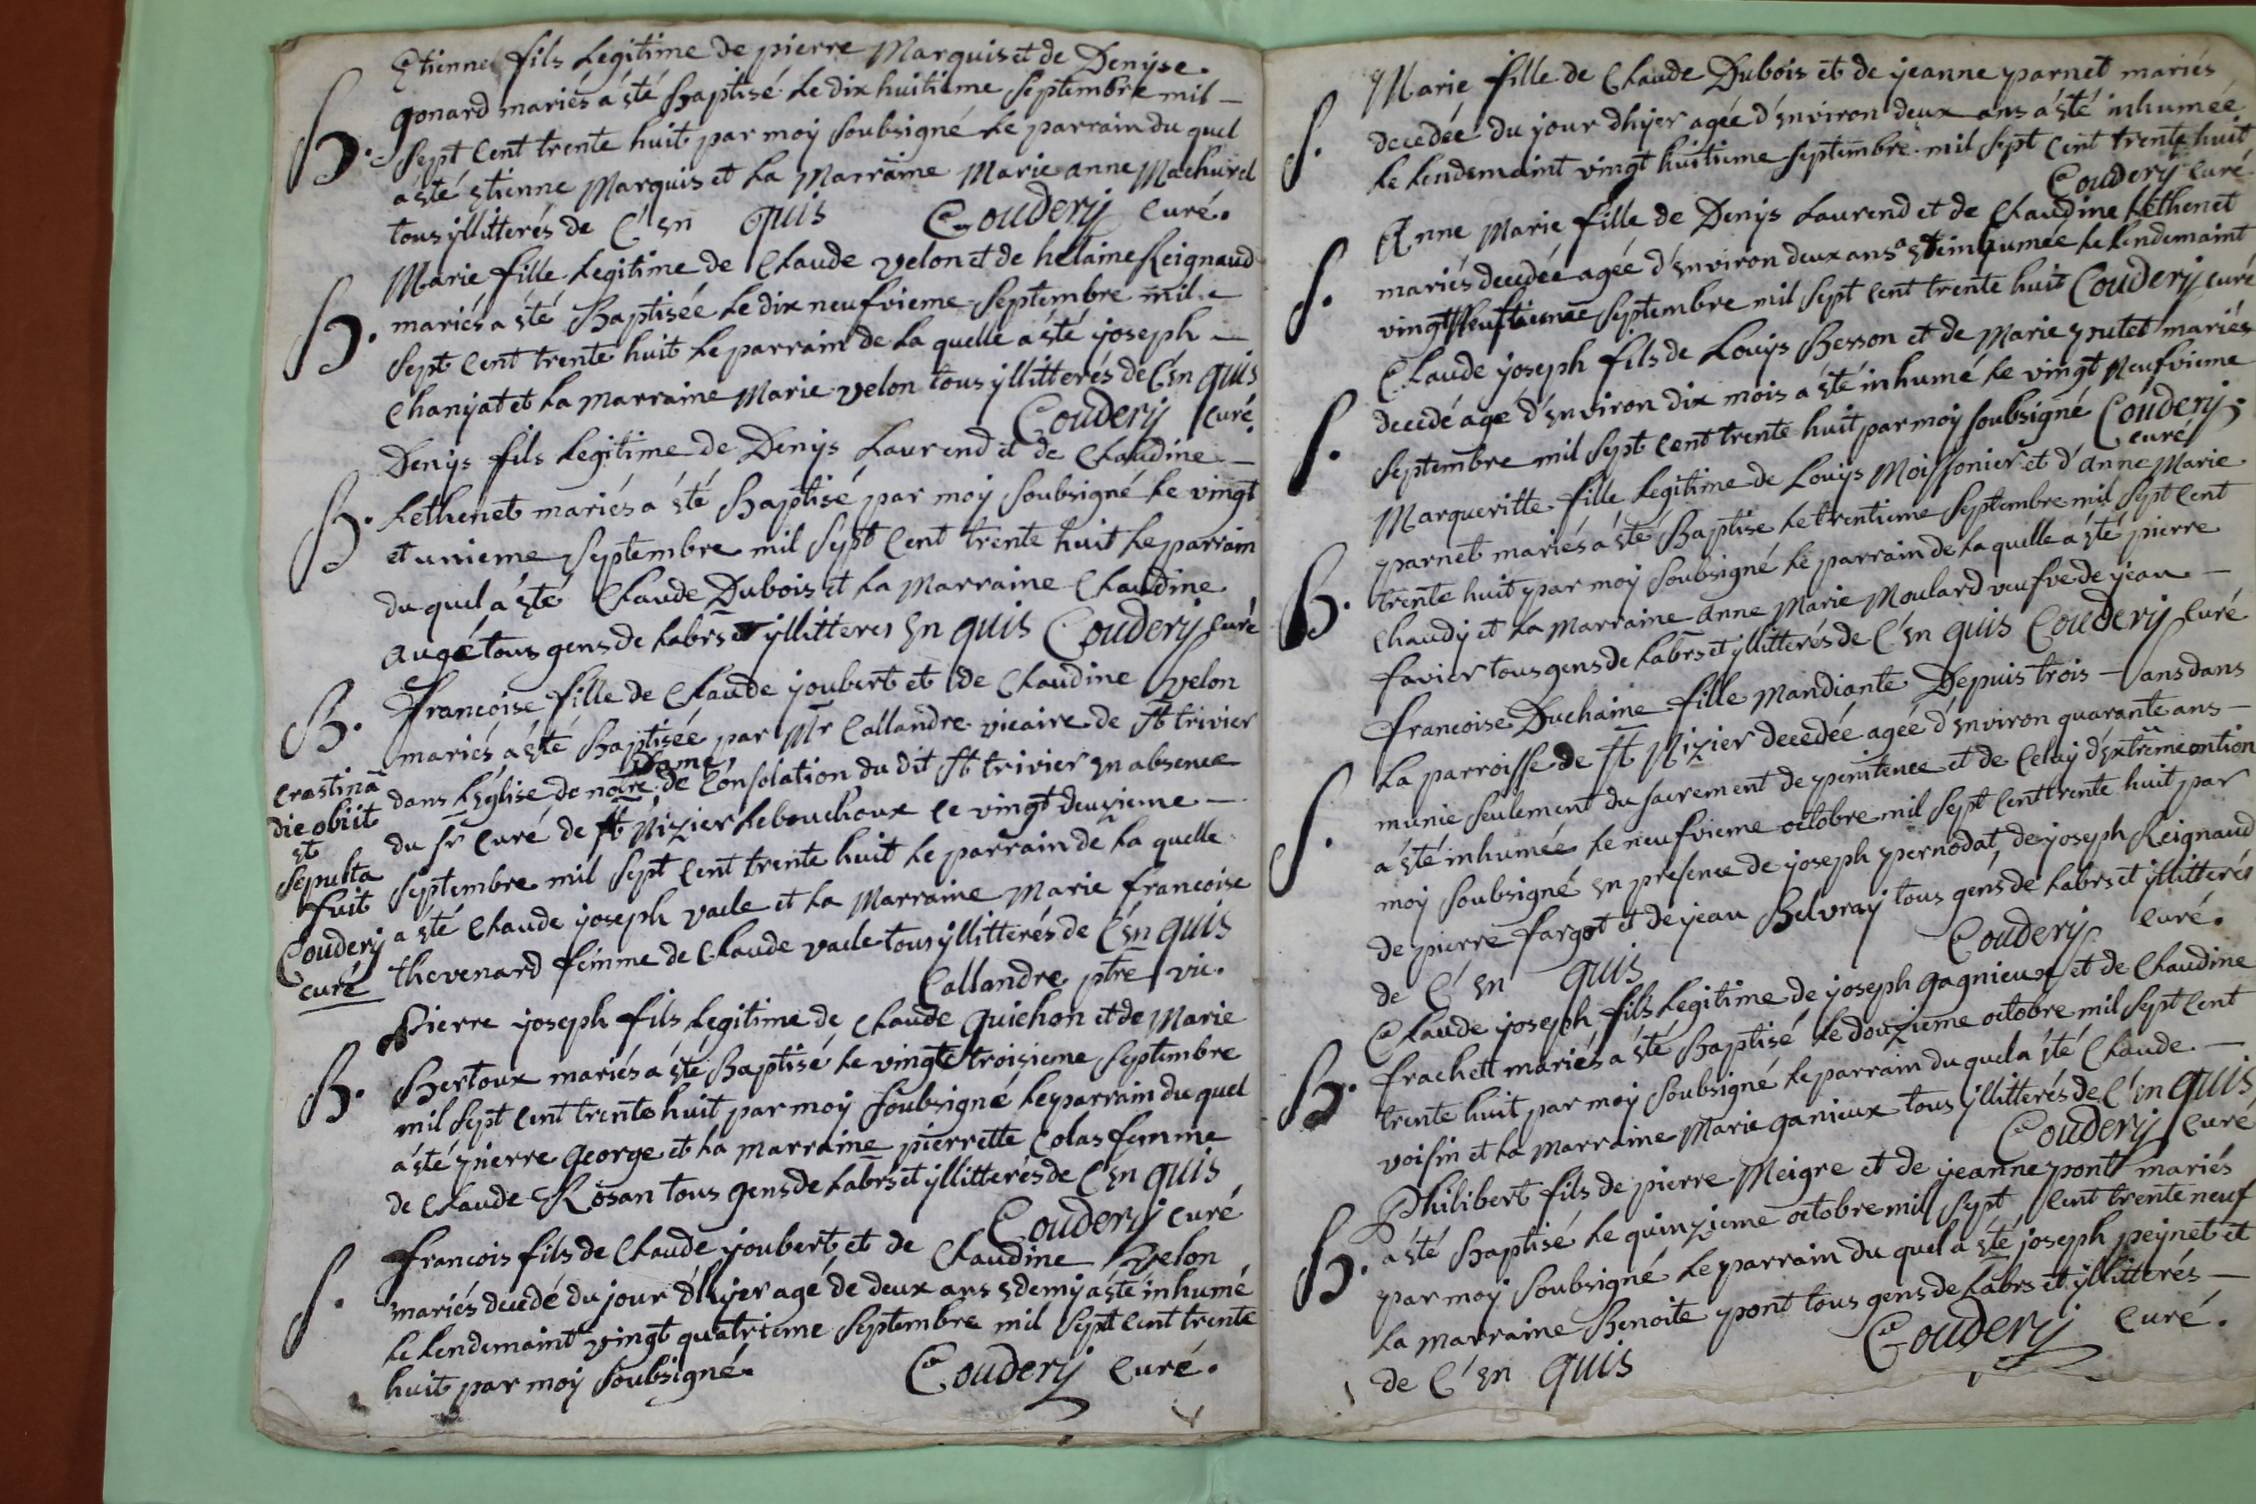 Etienne fils Legitime de pierre Marquis et de Denyse.
B. gonard mariés a été Baptisé Le dix huitieme Septembre mil –
Sept Cent trente huit par moy Soubsigné Le parrain du quel
a été Etienne Marquis et La Marraine Marie anne Machurel
tous yllitterés de C'en quis Coudery Curé.
Marie fille Legitime de Claude velon et de helaine Reignaud
B. mariés a été Baptisée Le dix neufvieme Septembre mil
Sept Cent trente huit Le parrain de La quelle a été joseph –
Chanyat et La Marraine Marie velon tous yllitterés de C'en quis
Coudery Curé.
Denys fils Legitime de Denys Laurend et de Claudine –
B. Lethenet mariés a été Baptisé par moy Soubsigné Le vingt
et unieme Septembre mil Sept Cent trente huit Le parrain
du quel a été Claude Dubois et La Marraine Claudine
augé tous gens de Labrs et yllitteres En quis Coudery Curé
B. francoise fille de Claude joubert et de Claudine velon
mariés a été Baptisée par Mr Callandre vicaire de St trivier
Dame
dans L'Eglise de notre de Consolation du dit St trivier en absence
du Sr Curé de St Nizier Lebouchoux Ce vingt deuxieme –
Septembre mil Sept Cent trente huit Le parrain de La quelle
a été Claude joseph vacle et La Marraine Marie francoise
thevenard femme de Claude vacle tous yllitterés de C'en quis
Callandre ptre vic.
crastinā
die obiit
et
Sepulta
fuit
Coudery
curé
Pierre joseph fils Legitime de Claude Guichon et de Marie
B. Bertoux mariés a été Baptisé Le vingt troisieme Septembre
mil Sept Cent trente huit par moy Soubsigné Le parrain du quel
a été pierre George et La marraine pierrette Colas femme
de Claude Rosan tous gens de Labrs et yllitterés de C'en quis
Coudery Curé
francois fils de Claude joubert et de Claudine velon
S. mariés decedé du jour d'hyer agé de deux ans edemy a été inhumé
Le Lendemaint vingt quatrieme Septembre mil Sept Cent trente
huit par moy Soubsigné. Coudery Curé.
Marie fille de Claude Dubois et de jeanne parnet mariés
S. decedée du jour dhyer agée d'Environ deux ans a été inhumée
Le Lendemaint vingt huitieme Septembre mil Sept Cent trente huit
Coudery Curé
Anne Marie fille de Denys Laurend et de Claudine Lethenet
S. mariés decedée agée d'Environ deux ans a ete inhumée Le Lendemaint
vingt Neufvieme Septembre mil Sept Cent trente huit Coudery curé
Claude joseph fils de Louys Besson et de Marie putet mariés
S. decedé agé d'Environ dix mois a été inhumé Le vingt Neufvieme
Septembre mil Sept Cent trente huit par moy Soubsigné Coudery,
curé
Margueritte fille Legitime de Louys Moissonier et d'anne Marie
parnet mariés a été Baptise Le trentieme Septembre mil Sept Cent
B. trente huit par moy Soubsigné Le parrain de La quelle a été pierre
Chaudy et La Marraine anne Marie Moulard veufve de jean –
favier tous gens de Labrs et yllitterés de C'en quis Coudery Curé
francoise Duchaine fille Mandiante Depuis trois – ans dans
La parroisse de St Nizier decedée agée d'Environ quarante ans –
S. munie Seulement du Sacrement de penitence et de Celuy d'Extrême ontion
a été inhumée Le neufvieme octobre mil Sept Cent trente huit par
moy Soubsigné En presence de joseph pernodat, de joseph Reignaud
de pierre fargot et de jean Belvray tous gens de Labrs et yllitterés
de C'en quis Coudery Curé.
Claude joseph fils Legitime de joseph gagnieux et de Claudine
B. frachett mariés a été Baptisé Le douzieme octobre mil Sept Cent
trente huit par moy Soubsigné Le parrain du quel a été Claude –
voisin et La Marraine Marie ganieux tous yllitterés de C'en quis
Coudery Curé
Philibert fils de pierre Meigre et de jeanne pont mariés
B. a été Baptisé Le quinzieme octobre mil Sept Cent trente neuf
par moy Soubsigné Le parrain du quel a été joseph peynet et
La marraine Benoite pont tous gens de Labrs et yllitterés –
de C'en quis Coudery Curé.